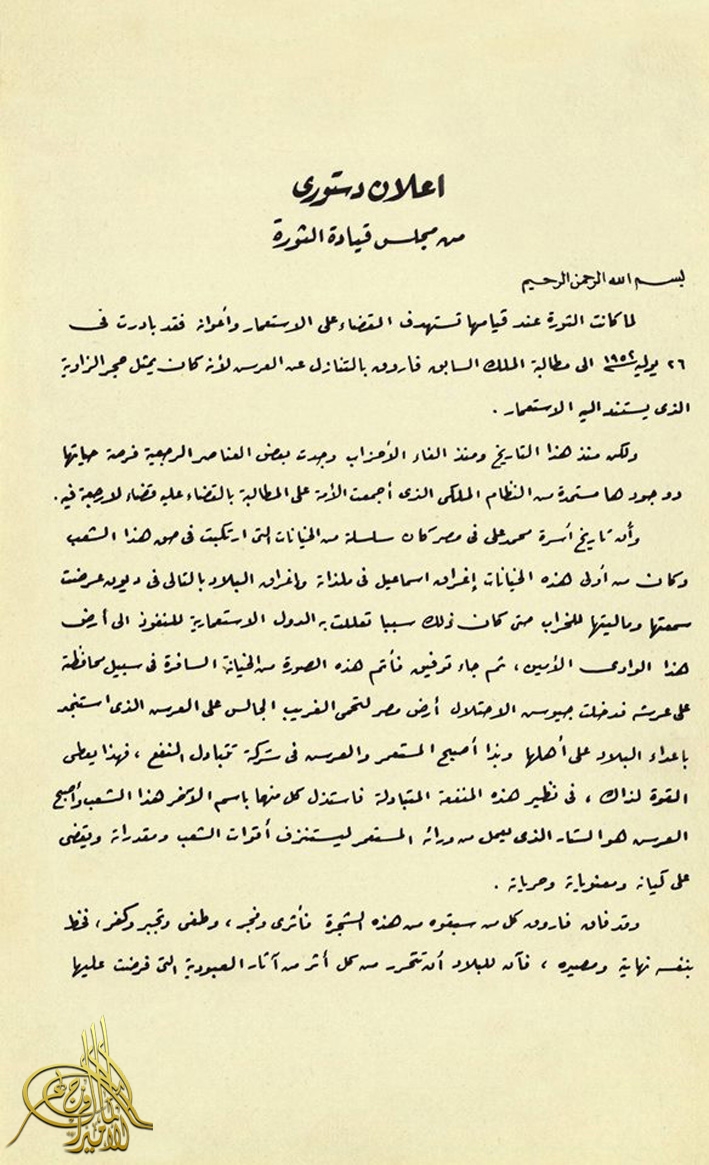 اعلان دستورى
من مجلس قيادة الثورة
بسم الله الرحمن الرحيم
لما كانت الثورة عند قيامها تستهدف القضاء على الاستعمار وأعوانه فقد بادرت فى
٢٦ يوليه ١٩٥٢ الى مطالبة الملك السابق فاروق بالتنازل عن العرش لأنه كان يمثل حجر الزاوية
الذى يستند اليه الاستعمار .
ولكن منذ هذا التاريخ ومنذ الغاء الأحزاب وجدت بعض العناصر الرجعية فرصة حياتها
ووجودها مستمدة من النظام الملكى الذى أجمعت الأمة على المطالبة بالقضاء عليه قضاء لا رجعة فيه .
وأن تاريخ أسرة محمد على فى مصر كان سلسلة من الخيانات التى ارتكبت فى حق هذا الشعب
وكان من أولى هذه الخيانات إغراق اسماعيل فى ملذاته وإغراق البلاد بالتالى فى ديون عرضت
سمعتها وماليتها للخراب حتى كان ذلك سببا تعللت به الدول الاستعمارية للنفوذ الى أرض
هذا الوادى الأمين ، ثم جاء توفيق فأتم هذه الصورة من الخيانة السافرة فى سبيل محافظته
على عرشه فدخلت جيوش الاحتلال أرض مصر لتحمى الغريب الجالس على العرش الذى استنجد
باعداء البلاد على أهلها وبذا أصبح المستعمر والعرش فى شركة تتبادل النفع ، فهذا يعطى
القوة لذاك ، فى نظير هذه المنفعة المتبادلة فاستذل كل منهما باسم الآخر هذا الشعب وأصبح
العرش هو الستار الذى يعمل من ورائه المستعمر ليستنزف أقوات الشعب ومقدراته ويقضى
على كيانه ومعنوياته وحرياته .
وقد فاق فاروق كل من سبقوه من هذه الشجرة فأثرى وفجر ، وطغى وتجبر وكفر ، فخط
بنفسه نهايته ومصيره ، فآن للبلاد أن تتحرر من كل أثر من آثار العبودية التى فرضت عليها